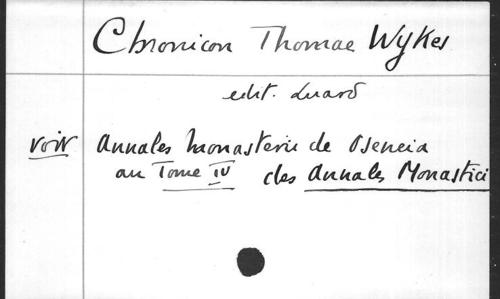 Chronicon Thomae Wykes
edit. Luard
voir Annales Monasterii de Oseneia
au Tome IV des Annales Monastici